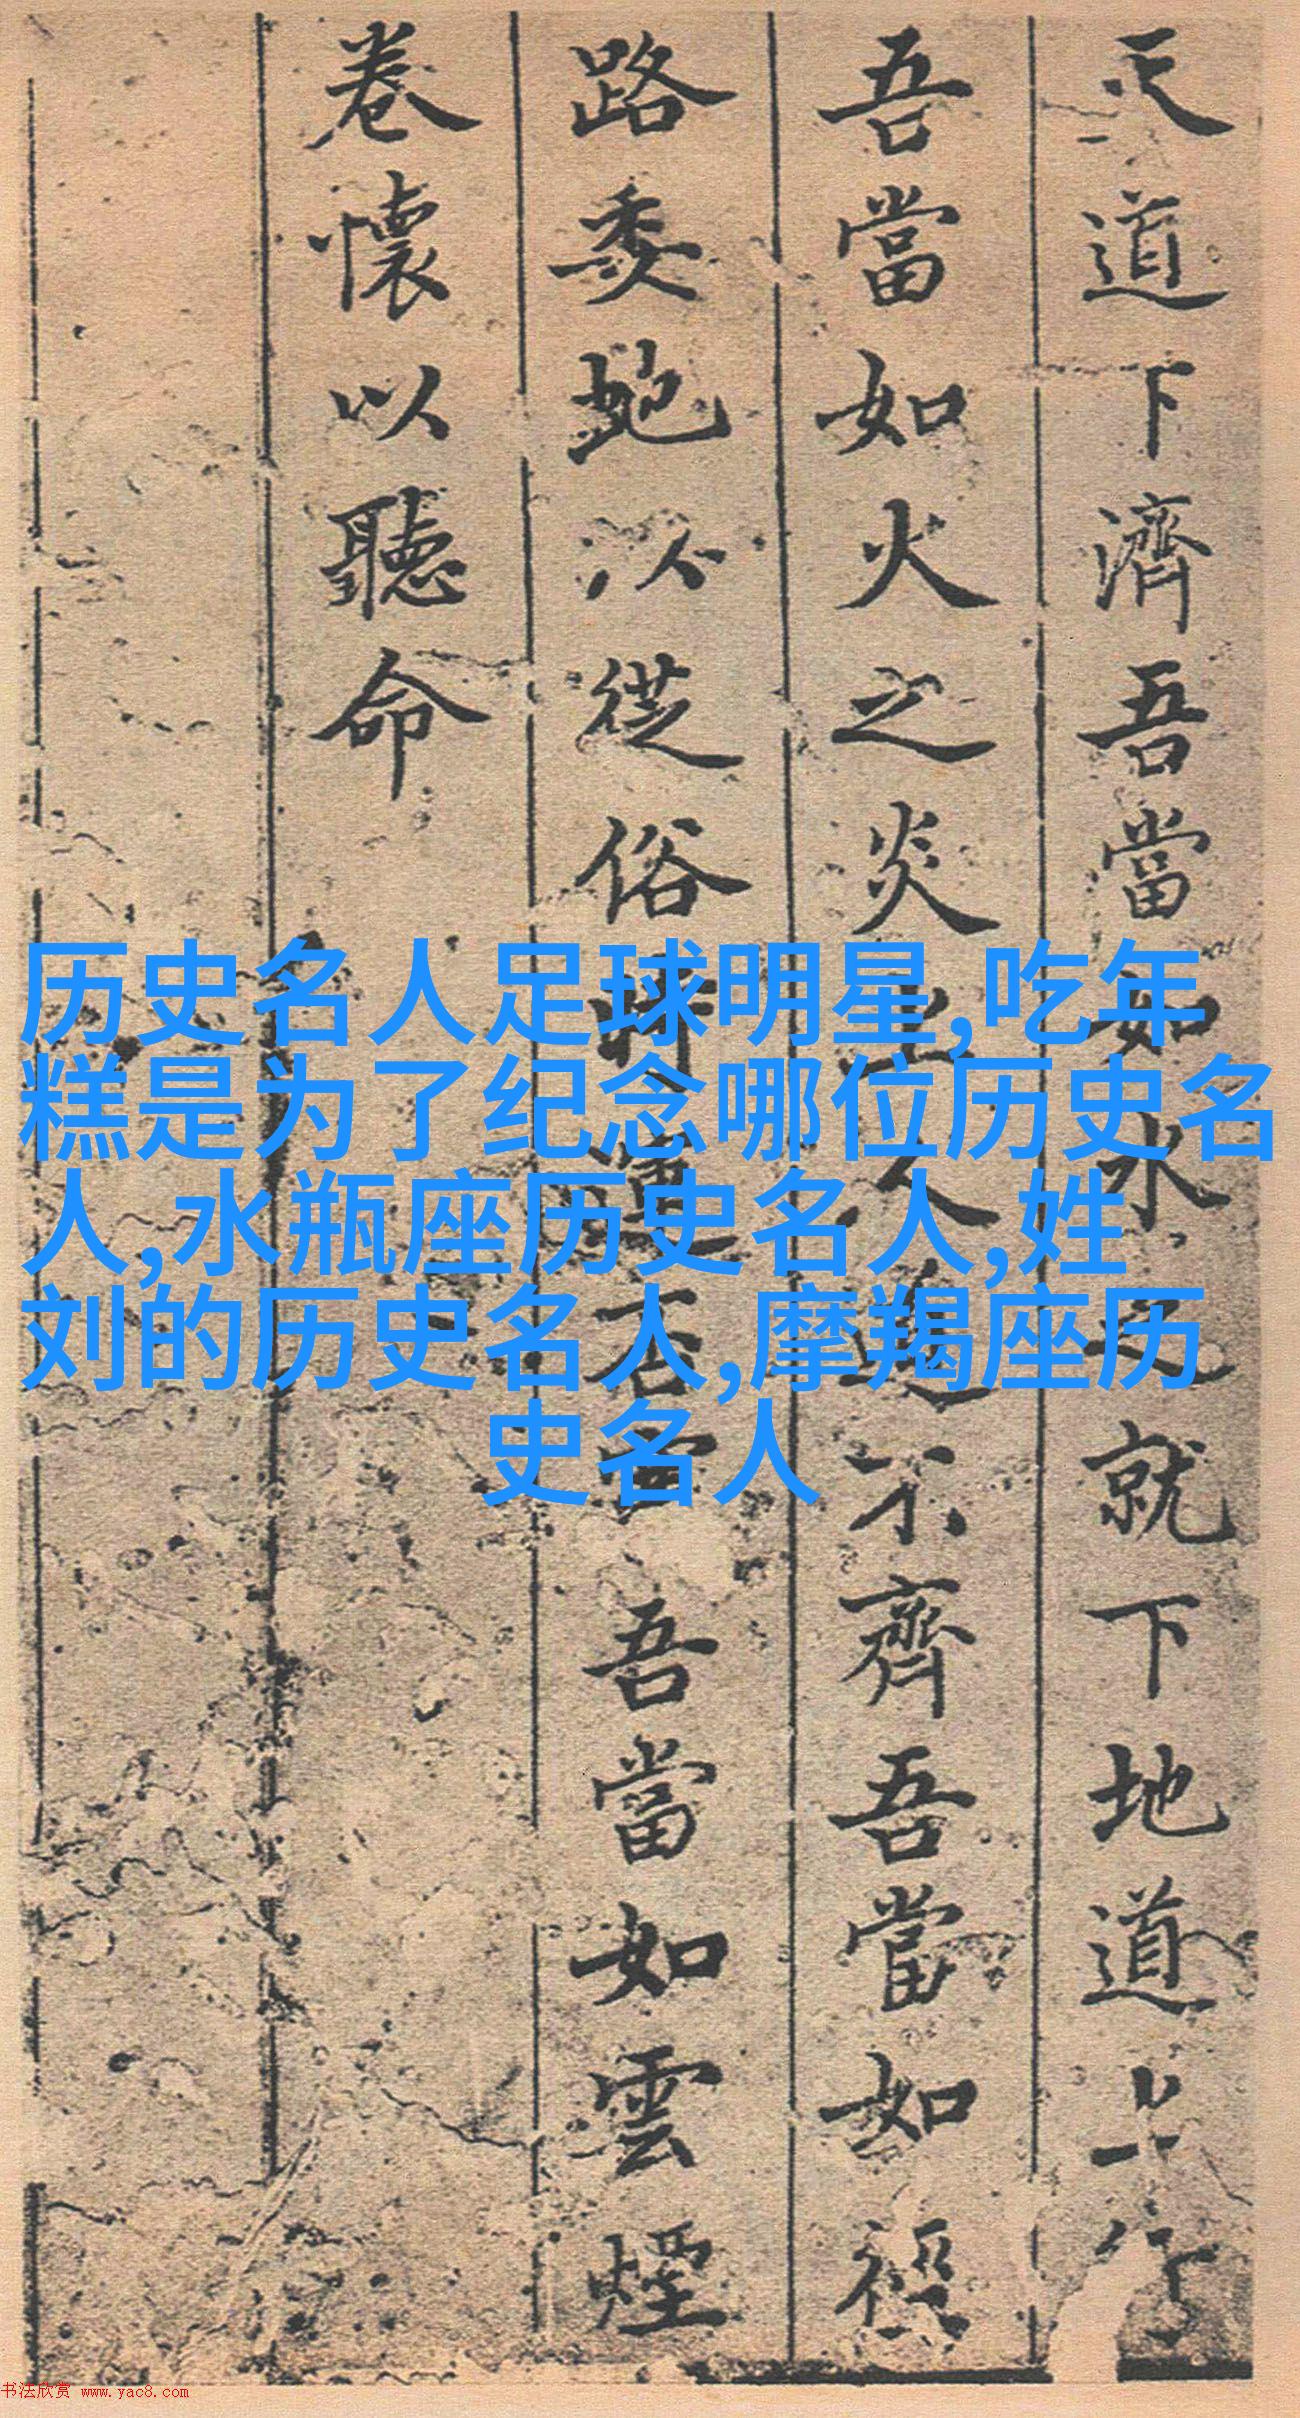 天道下濟吾當如水之就下地道上行
吾當如火之炎上人道不齊吾當如徑
路委虵以從俗時運否吾當如雲煙
卷懷以聽命
历史名人足球明星,吃年
糕是为了纪念哪位历史名
人,水瓶座历史名人,姓
刘的历史名人,摩羯座历
史名人
书法欣赏 www.yac8.com